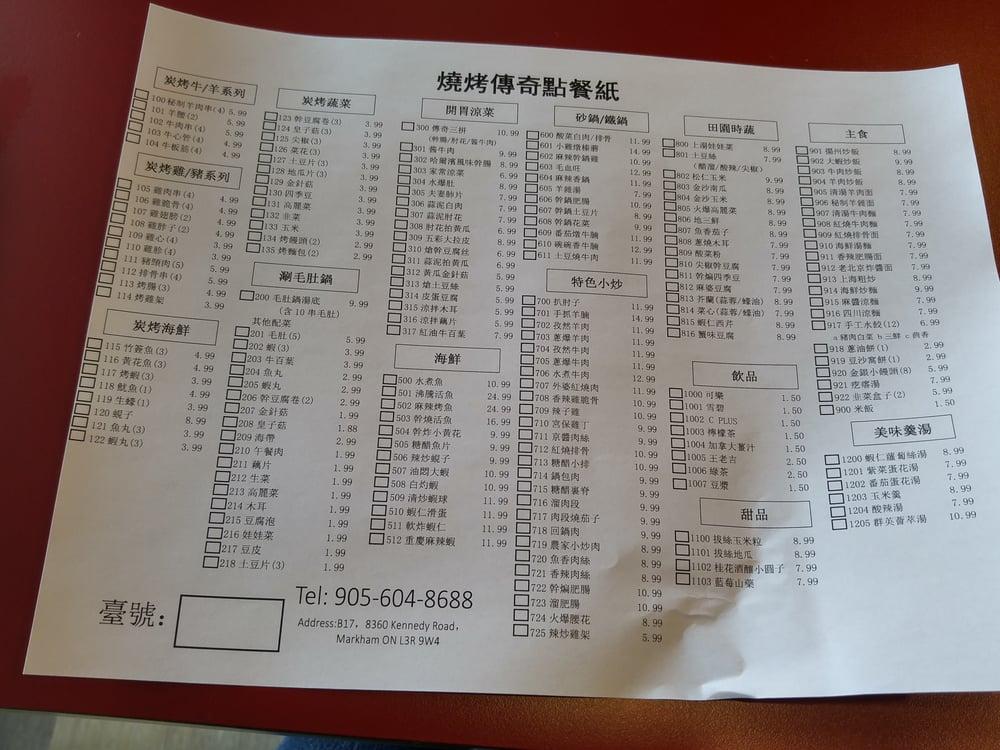 燒烤傳奇點餐紙
炭烤牛/羊系列
100 秘制羊肉串(4) 5.99
101 羊腰(2) 5.99
102 牛肉串(4) 5.99
103 牛心管(4) 4.99
104 牛板筋(4) 4.99
炭烤雞/豬系列
105 雞肉串(4) 4.99
106 雞脆骨(4) 4.99
107 雞翅膀(2) 4.99
108 雞脖子(2) 4.99
109 雞心(4) 4.99
110 雞胗(4) 3.99
111 豬頸肉(5) 5.99
112 排骨串(4) 5.99
113 烤腸(3) 4.99
114 烤雞架 3.99
炭烤海鮮
115 竹簽魚(3) 4.99
116 黃花魚(3) 4.99
117 烤蝦(3) 3.99
118 魷魚(1) 4.99
119 生蠔(1) 3.99
120 蜆子 8.99
121 魚丸(3) 3.99
122 蝦丸(3) 3.99
炭烤蔬菜
123 幹豆腐卷(3) 3.99
124 皇子菇(3) 3.99
125 尖椒(3) 2.99
126 菜花(3) 3.99
127 土豆片(3) 3.99
128 地瓜片(3) 3.99
129 金針菇 3.99
130 四季豆 3.99
131 高麗菜 3.99
132 韭菜 3.99
133 玉米 3.99
134 烤饅頭(2) 2.99
135 烤麵包(2) 2.99
涮毛肚鍋
200 毛肚鍋湯底 9.99
(含 10 串毛肚)
其他配菜
201 毛肚(5) 5.99
202 蝦(3) 3.99
203 牛百葉 3.99
204 魚丸 2.99
205 蝦丸 2.99
206 幹豆腐卷(2) 2.99
207 金針菇 1.99
208 皇子菇 1.88
209 海帶 2.99
210 午餐肉 1.99
211 藕片 1.99
212 生菜 1.99
213 高麗菜 1.99
214 木耳 1.99
215 豆腐泡 1.99
216 娃娃菜 1.99
217 豆皮 1.99
218 土豆片(3) 1.99
開胃涼菜
300 傳奇三拼 10.99
(幹腸/肘花/醬牛肉)
301 醬牛肉 9.99
302 哈爾濱風味幹腸 8.99
303 家常涼菜 6.99
304 水爆肚 8.99
305 夫妻肺片 7.99
306 蒜泥白肉 7.99
307 蒜泥肘花 7.99
308 肘花拍黃瓜 6.99
309 五彩大拉皮 8.99
310 熗幹豆腐絲 6.99
311 蒜泥拍黃瓜 6.99
312 黃瓜金針菇 5.99
313 熗土豆絲 5.99
314 皮蛋豆腐 5.99
315 涼拌木耳 5.99
316 涼拌藕片 5.99
317 紅油牛百葉 7.99
海鮮
500 水煮魚 10.99
501 沸騰活魚 24.99
502 麻辣烤魚 24.99
503 幹燒活魚 16.99
504 幹炸小黃花 9.99
505 糖醋魚片 9.99
506 辣炒蜆子 9.99
507 油悶大蝦 10.99
508 白灼蝦 10.99
509 清炒蝦球 11.99
510 蝦仁滑蛋 11.99
511 軟炸蝦仁 11.99
512 重慶麻辣蝦 11.99
砂鍋/鐵鍋
600 酸菜白肉/排骨 11.99
601 小雞燉榛蘑 14.99
602 麻辣幹鍋雞 10.99
603 毛血旺 12.99
604 麻辣香鍋 11.99
605 羊雜湯 11.99
606 幹鍋肥腸 10.99
607 幹鍋土豆片 8.99
608 幹鍋花菜 8.99
609 番茄燉牛腩 11.99
610 碗碗香牛腩 12.99
611 土豆燒牛肉 11.99
特色小炒
700 扒肘子 11.99
701 手抓羊腩 14.99
702 孜然羊肉 11.99
703 蔥爆羊肉 11.99
704 孜然牛肉 11.99
705 蔥爆牛肉 11.99
706 水煮牛肉 12.99
707 外婆紅燒肉 11.99
708 香辣雞脆骨 10.99
709 辣子雞 10.99
710 宮保雞丁 9.99
711 京醬肉絲 9.99
712 紅燒排骨 10.99
713 糖醋小排 10.99
714 鍋包肉 9.99
715 糖醋裏脊 9.99
716 溜肉段 9.99
717 肉段燒茄子 9.99
718 回鍋肉 9.99
719 農家小炒肉 9.99
720 魚香肉絲 8.99
721 香辣肉絲 8.99
722 幹煸肥腸 10.99
723 溜肥腸 10.99
724 火爆腰花 8.99
725 辣炒雞架 5.99
田園時蔬
800 上湯娃娃菜 9.99
801 土豆絲 7.99
(醋溜/酸辣/尖椒)
802 松仁玉米 9.99
803 金沙南瓜 8.99
804 金沙玉米 8.99
805 火爆高麗菜 8.99
806 地三鮮 8.99
807 魚香茄子 8.99
808 蔥燒木耳 8.99
809 酸菜粉 7.99
810 尖椒幹豆腐 7.99
811 幹煸四季豆 7.99
812 麻婆豆腐 7.99
813 芥蘭(蒜蓉/蠔油) 8.99
814 菜心(蒜蓉/蠔油) 7.99
815 蝦仁西芹 8.99
816 蟹味豆腐 8.99
飲品
1000 可樂 1.50
1001 雪碧 1.50
1002 C PLUS 1.50
1003 檸檬茶 1.50
1004 加拿大薑汁 1.50
1005 王老吉 2.50
1006 綠茶 2.50
1007 豆漿 1.50
甜品
1100 拔絲玉米粒 8.99
1101 拔絲地瓜 8.99
1102 桂花酒釀小圓子 7.99
1103 藍莓山藥 7.99
主食
901 揚州炒飯 8.99
902 大蝦炒飯 9.99
903 牛肉炒飯 8.99
904 羊肉炒飯 8.99
905 清湯羊肉面 7.99
906 秘制羊雜面 7.99
907 清湯牛肉麵 7.99
908 紅燒牛肉麵 7.99
909 紅燒排骨面 7.99
910 海鮮湯麵 7.99
911 香辣肥腸面 7.99
912 老北京炸醬面 7.99
913 上海粗炒 8.99
914 海鮮炒麵 9.99
915 麻醬涼麵 7.99
916 四川涼麵 7.99
917 手工水餃(12) 6.99
a 豬肉白菜 b 三鮮 c 茴香
918 蔥油餅(1) 2.99
919 豆沙窩餅(1) 2.99
920 金銀小饅頭(8) 5.99
921 疙瘩湯 7.99
922 韭菜盒子(2) 5.99
900 米飯 1.50
美味羹湯
1200 蝦仁蘿蔔絲湯 8.99
1201 紫菜蛋花湯 7.99
1202 番茄蛋花湯 7.99
1203 玉米羹 8.99
1204 酸辣湯 7.99
1205 群英薈萃湯 10.99
臺號:
Tel: 905-604-8688
Address:B17, 8360 Kennedy Road,
Markham ON L3R 9W4